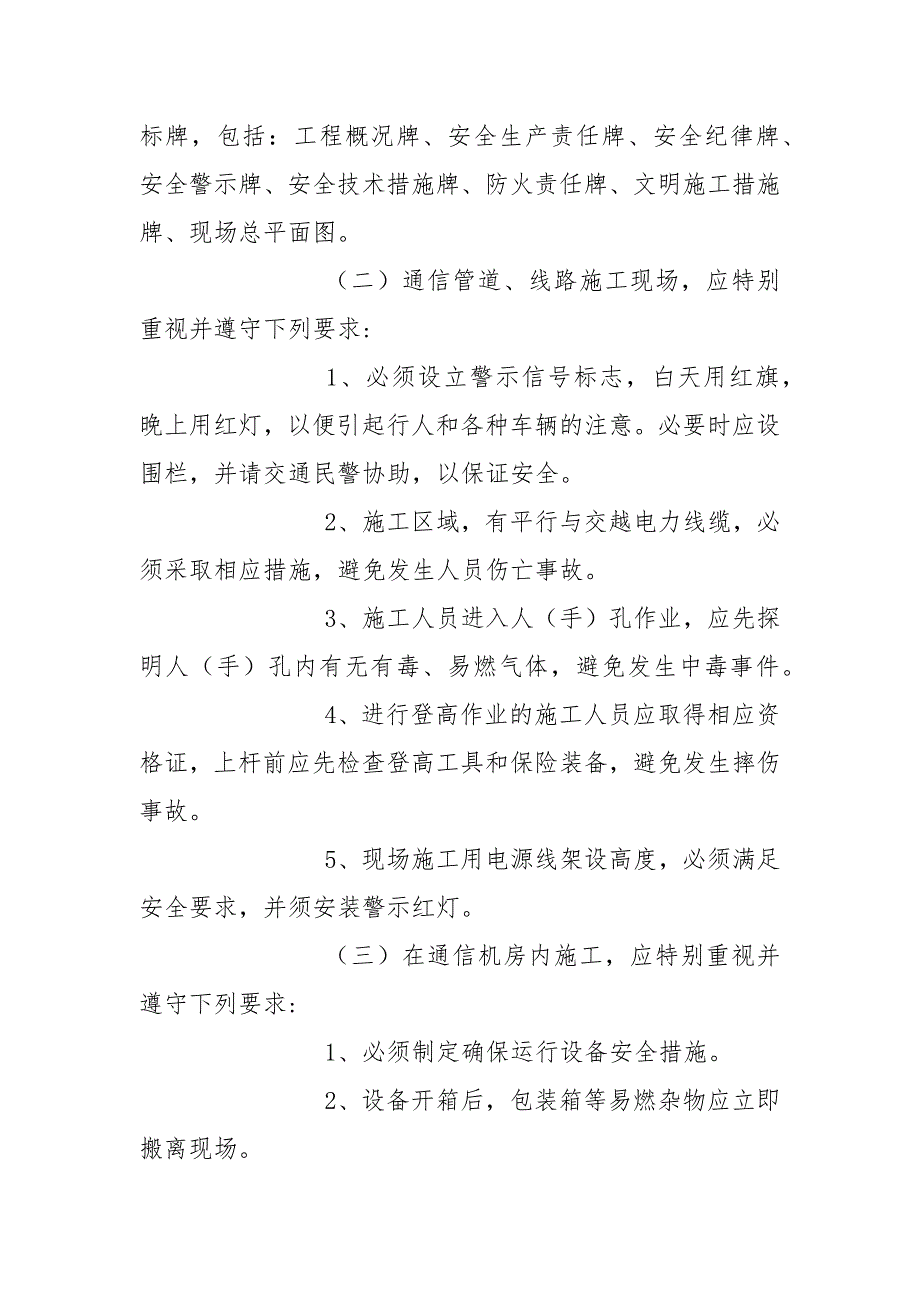 标牌，包括：工程概况牌、安全生产责任牌、安全纪律牌、
安全警示牌、安全技术措施牌、防火责任牌、文明施工措施
牌、现场总平面图。
（二）通信管道、线路施工现场，应特别
重视并遵守下列要求:
1、必须设立警示信号标志，白天用红旗，
晚上用红灯，以便引起行人和各种车辆的注意。必要时应设
围栏，并请交通民警协助，以保证安全。
2、施工区域，有平行与交越电力线缆，必
须采取相应措施，避免发生人员伤亡事故。
3、施工人员进入人（手）孔作业，应先探
明人（手）孔内有无有毒、易燃气体，避免发生中毒事件。
4、进行登高作业的施工人员应取得相应资
格证，上杆前应先检查登高工具和保险装备，避免发生摔伤
事故。
5、现场施工用电源线架设高度，必须满足
安全要求，并须安装警示红灯。
（三）在通信机房内施工，应特别重视并
遵守下列要求:
1、必须制定确保运行设备安全措施。
2、设备开箱后，包装箱等易燃杂物应立即
搬离现场。